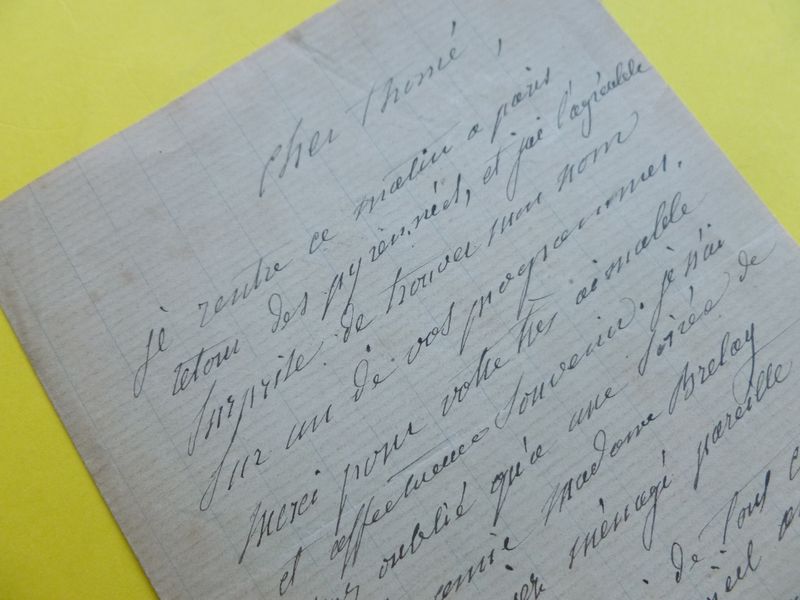 Cher Thomé,
je rentre ce matin a paris
retour des pyrennées, et j'ai l'agréable
surprise de trouver mon nom
sur un de vos programmes.
merci pour votre très aimable
et affectueux souvenir. je n'ai
oublié qu'a une soirée de
amie Madame Brelay
ménagé pareille
de tout c